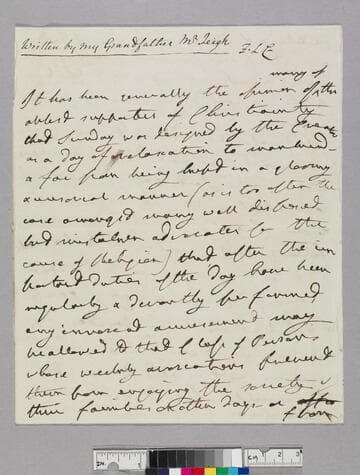 Written by my Grandfather Mr Leigh F.L.C
many of
It has been generally the opinion of the
ablest supporters of Christianity
that Sunday was designed by the Creator
as a day of relaxation to mankind
& far from being kept in a gloomy
manner (as is too often the
case amongst many well disposed
but mistaken advocates for the
cause of Religion) that after the im
portant duties of the Day have been
regularly & devoutly performed
any innocent amusement may
be allowed to that Class of Persons
whose weekly avocations prevent
them from enjoying the society of
their families on other days or
from